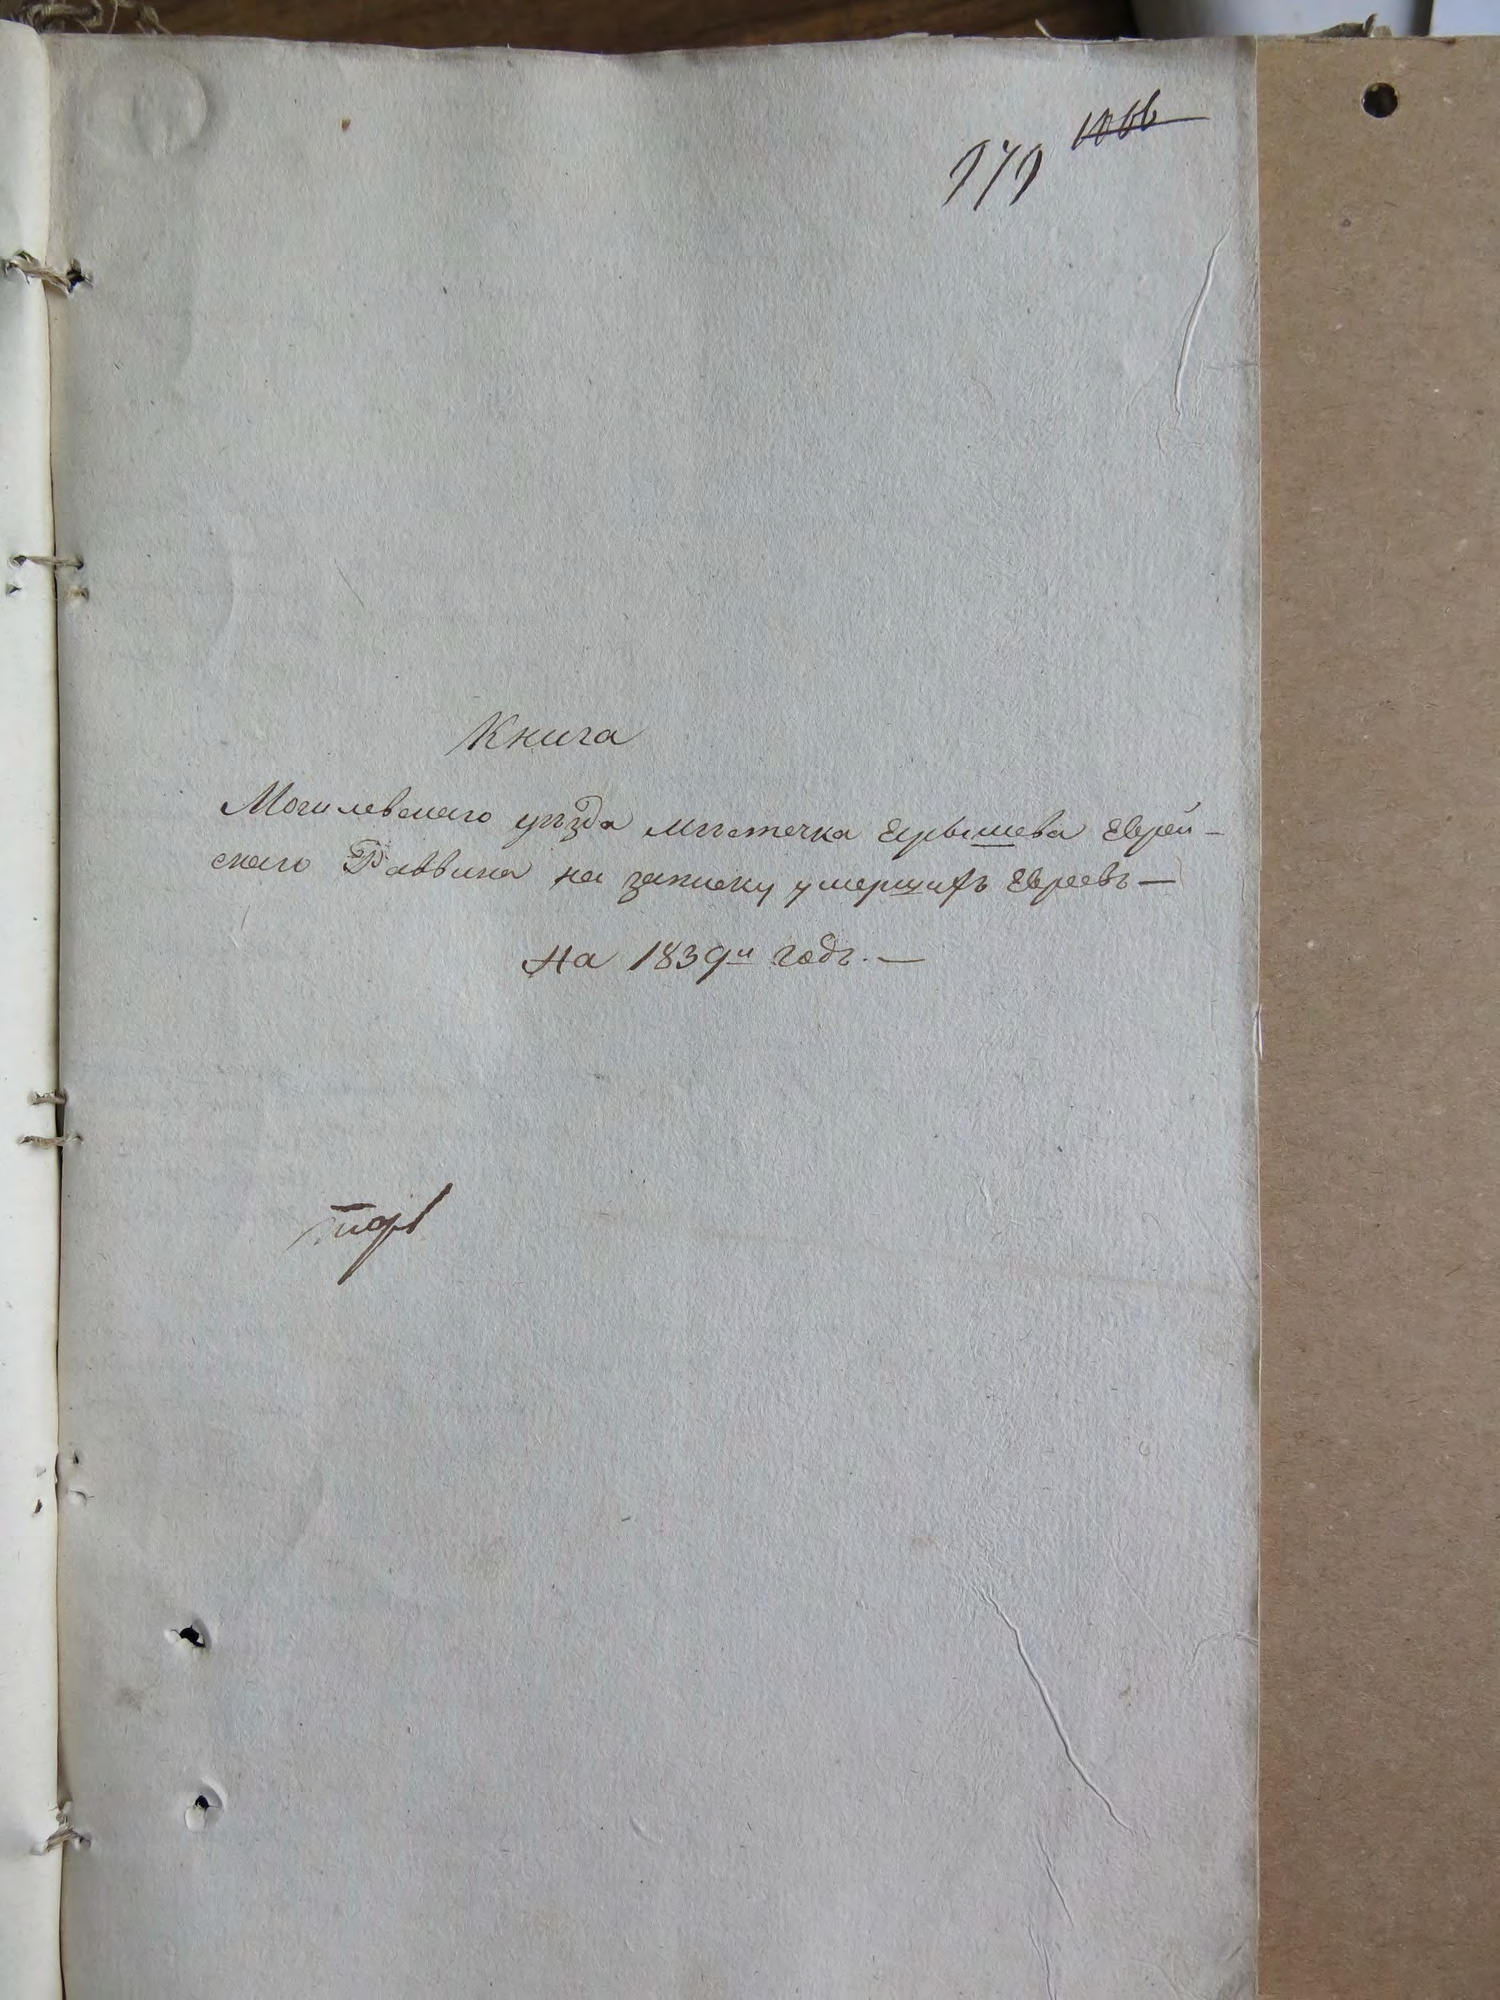 1066
979
Книга
Могилевскаго уѣзда мѣстечка Ярышева Еврей-
скаго Раввина на записку умершихъ Евреевъ —
На 1839й годъ. —